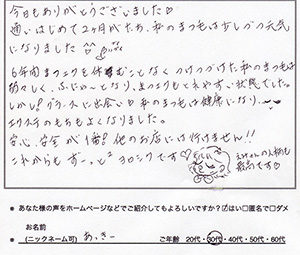 今日もありがとうございました♡
通いはじめて2ヶ月がたち、私のまつ毛は少しづつ元気
になりました
6年間まつエクを休むことなくつけつづけた私のまつ毛は
弱々しく、ふにゃ〜となり、まつエクもとれやすい状態でした。
しかし!プラーネに出会い♡私のまつ毛は健康になり
エクステのもちもよくなりました。
安心、安全が1番!他のお店には行けません!!
これからもずーっと ヨロシクです♡
最高です!
● あなた様の声をホームページなどでご紹介してもよろしいですか?☑はい□匿名で□ダメ
お名前
(ニックネーム可) あっきー
ご年齢 20代・30代・40代・50代・60代